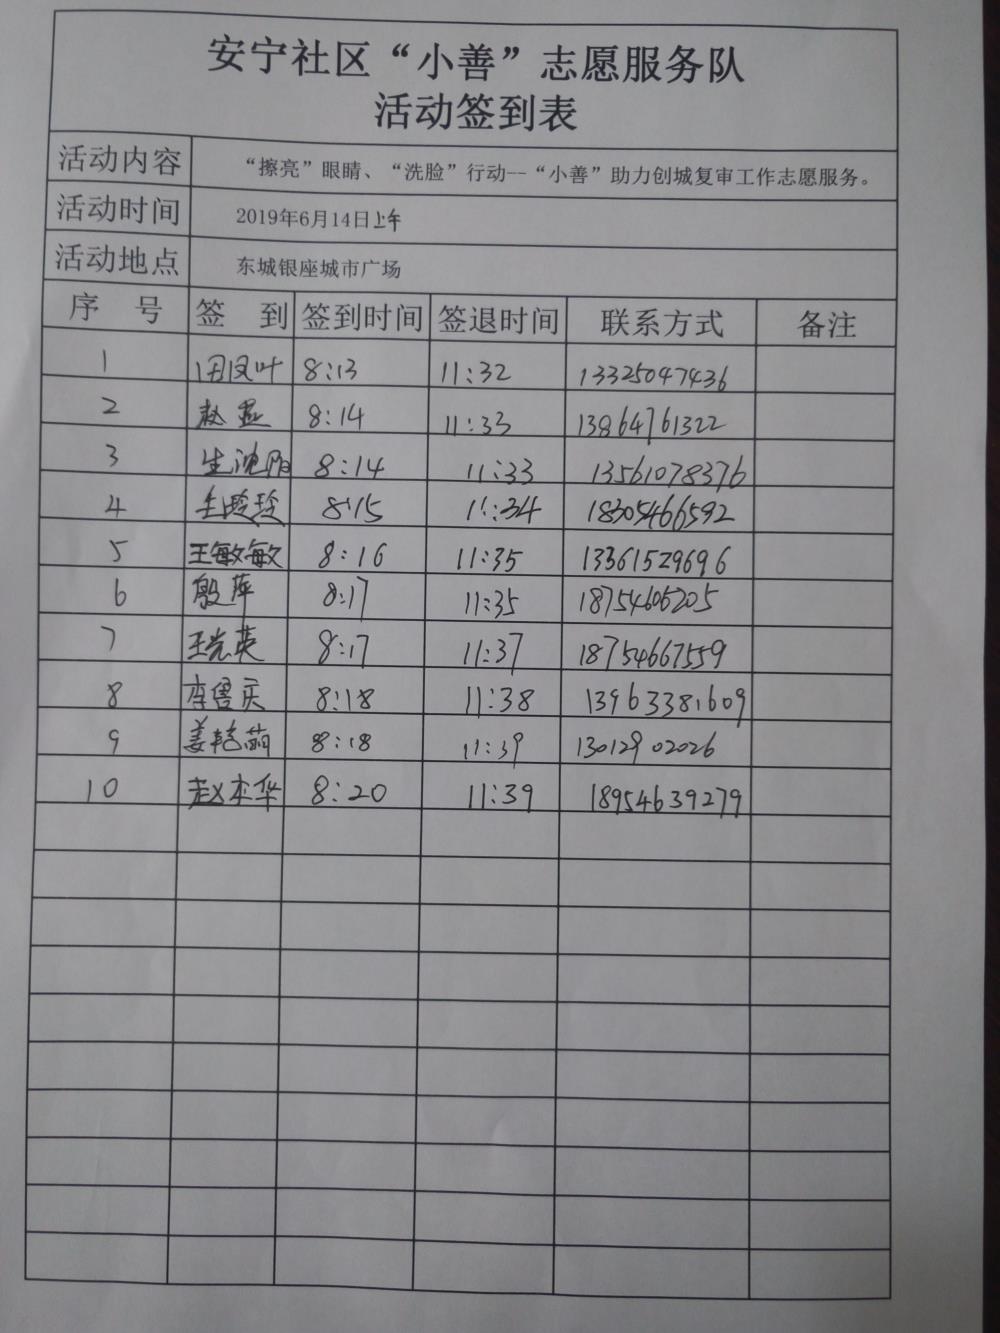 安宁社区“小善”志愿服务队
活动签到表
活动内容 “擦亮”眼睛、“洗脸”行动--“小善”助力创城复审工作志愿服务。
活动时间 2019年6月14日上午
活动地点 东城银座城市广场
序 号 签 到 签到时间 签退时间 联系方式 备注
1 田凤叶 8:13 11:32 13325047436
2 赵 8:14 11:33 13864761322
3 生沈阳 8:14 11:33 13561078376
4 王玲玲 8:15 11:34 18305466592
5 王敏敏 8:16 11:35 13361529696
6 殷萍 8:17 11:35 18754605205
7 王光英 8:17 11:37 18754667559
8 李鲁庆 8:18 11:38 13963381609
9 姜艳萌 8:18 11:39 13012902026
10 赵本华 8:20 11:39 18954639279